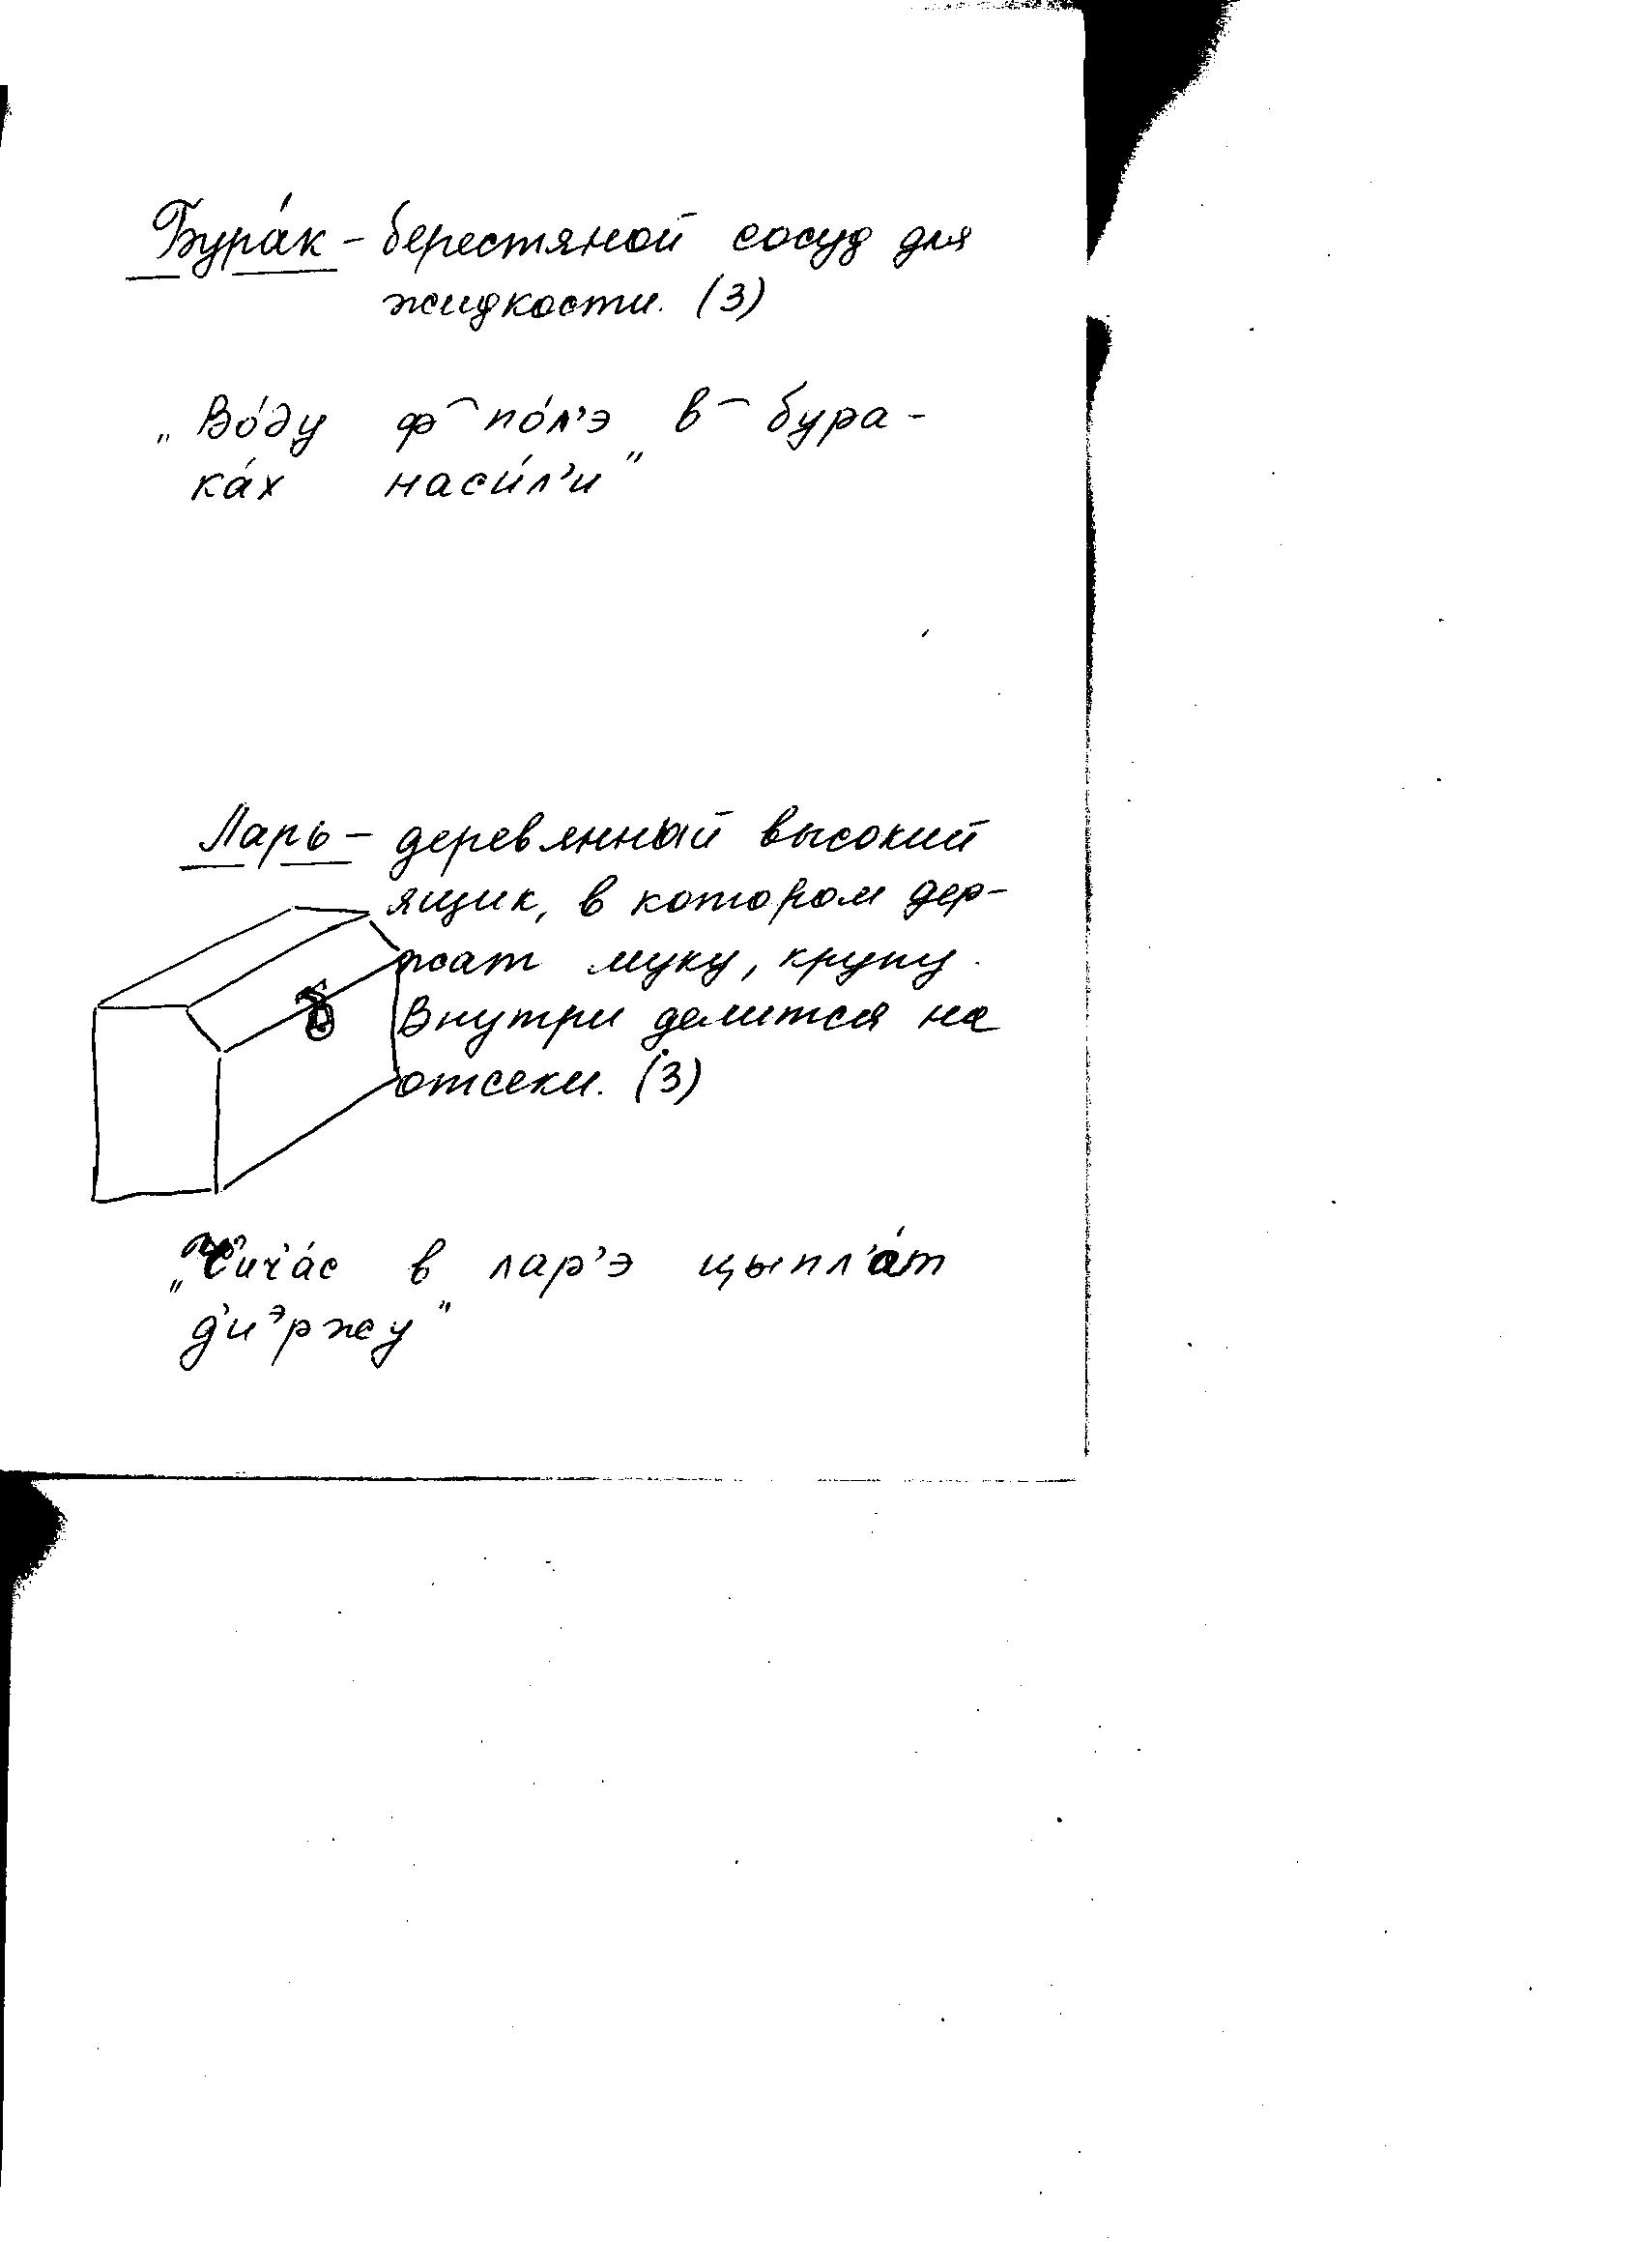 Бура́к – берестяной сосуд для
жидкости. (3)
„Во́ду ф⁀по́л’э в⁀бура-
ка́х наси́л’и”
Ларь – деревянный высокий
ящик, в котором дер-
жат муку, крупу.
Внутри делится на
отсеки. (3)
„С’ич’а́с в лар’э цыпл’а́т
д’иэржу”